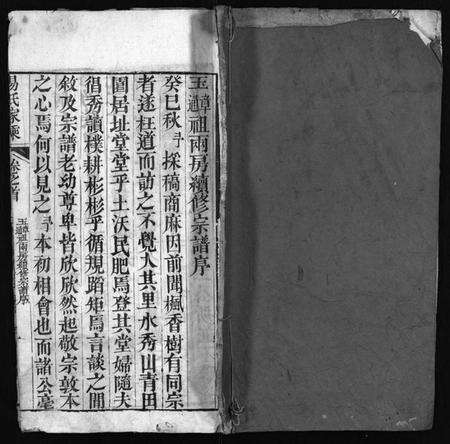 玉章遠祖兩房續修宗譜序
癸巳秋予採稿商麻因前聞楓香樹有同宗
者遂枉道而訪之不覺入其里水秀山青田
圍居址堂堂乎土沃民肥焉登其堂婦隨夫
倡秀讀樸耕彬彬乎循規蹈矩焉言談之間
敘及宗譜老幼尊卑皆欣欣然起敬宗敦本
之心焉何以見之予本初相會也而諸公毫
易氏家乘 卷之首